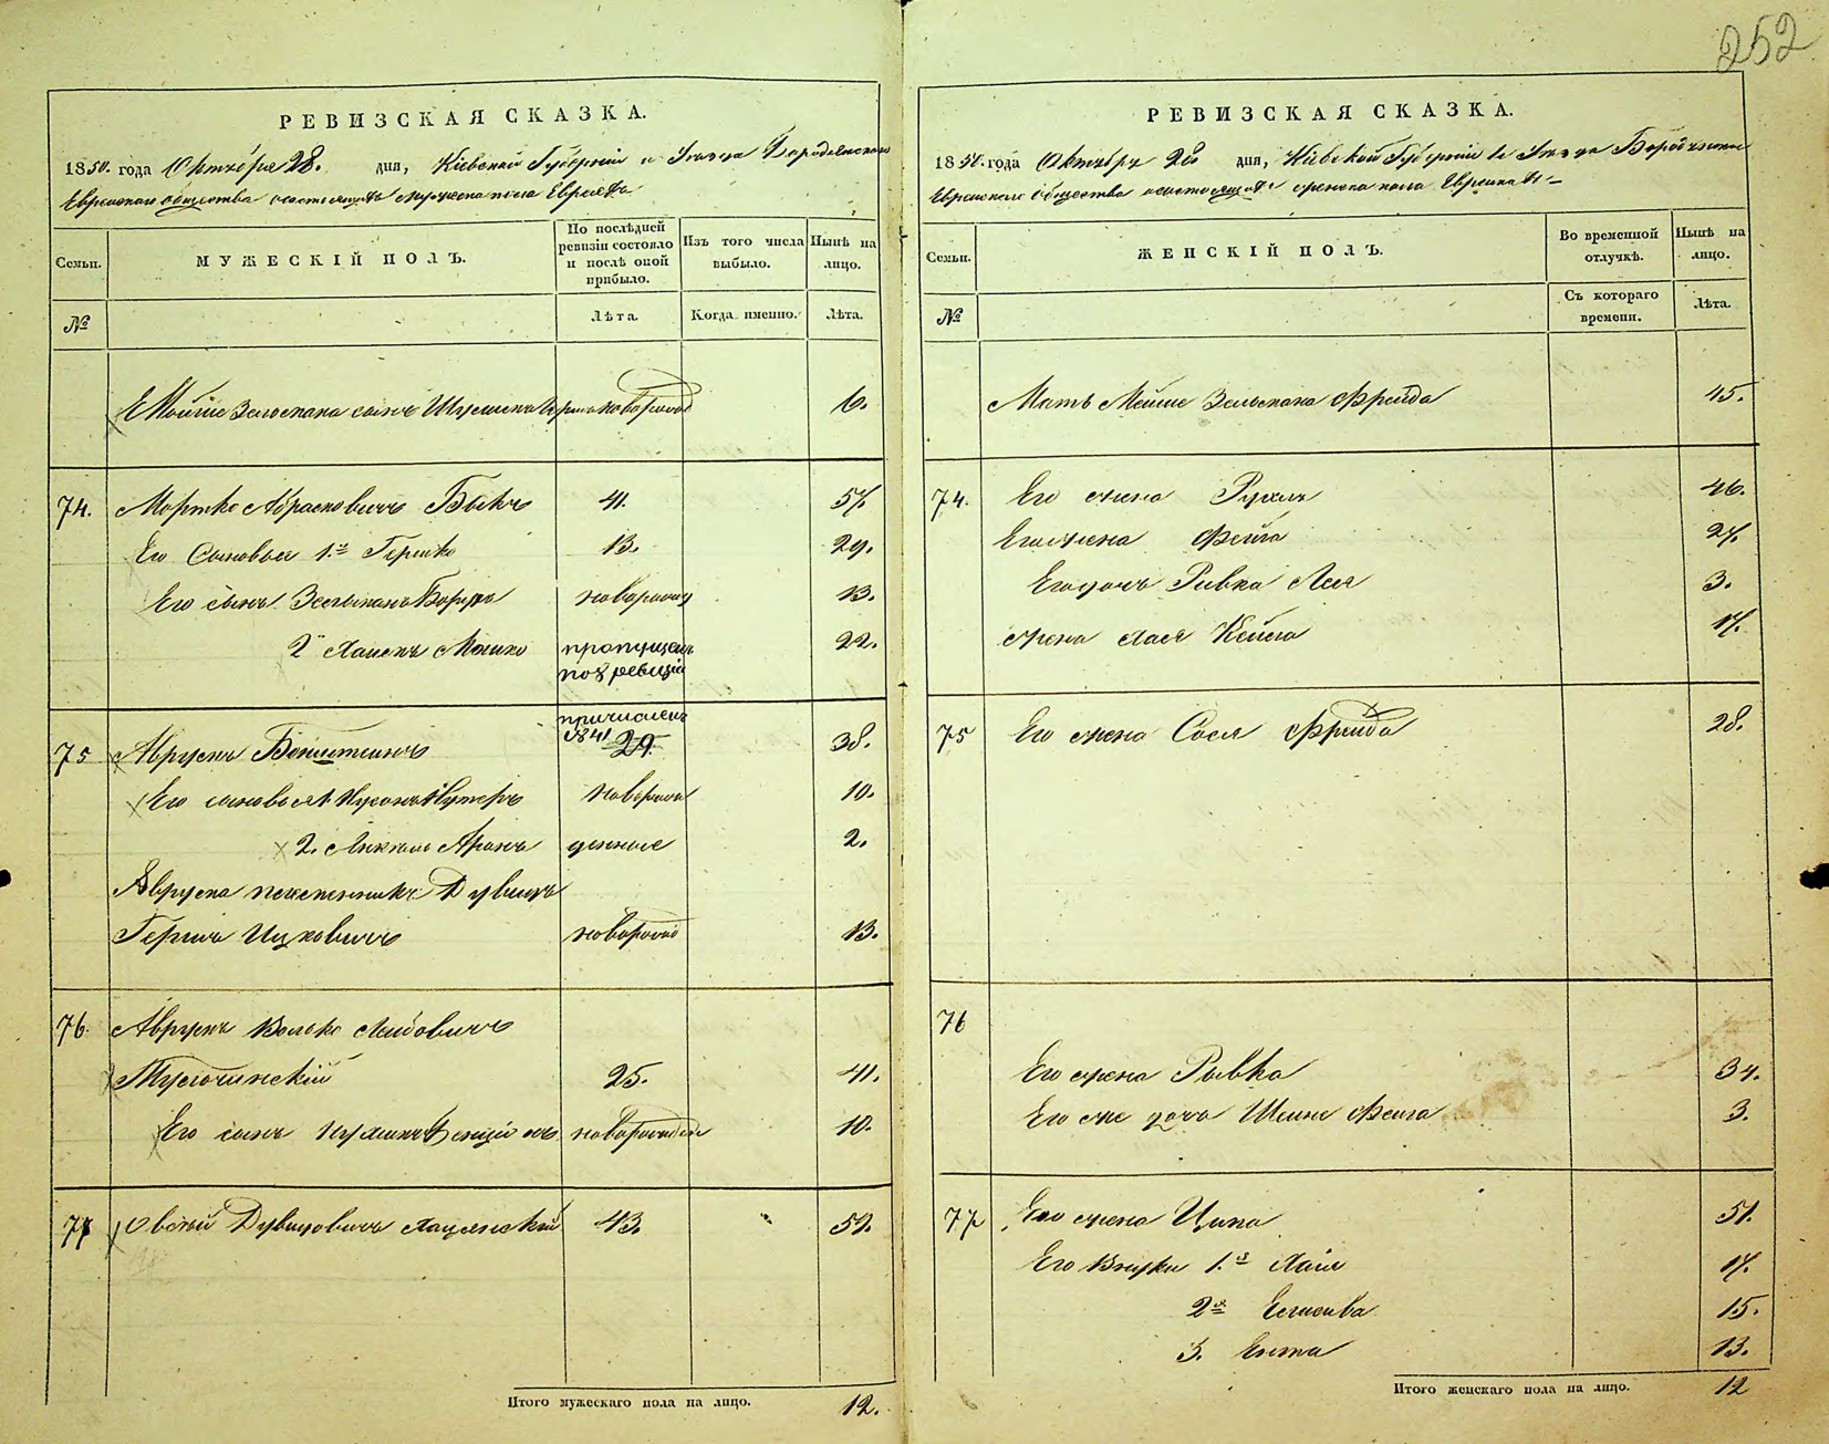 252
РЕВИЗСКАЯ СКАЗКА.
1850. года Октября 28. дня, Кіевской Губерніи и Уѣзда Бородянскаго
Еврейскаго общества состоящихъ мужеска пола Евреевъ
Семьи.
МУЖЕСКІЙ ПОЛЪ.
По послѣдней ревизіи состояло и послѣ оной прибыло.
Изъ того числа выбыло.
Нынѣ на лицо.
№
Лѣта.
Когда именно.
Лѣта.
Мойше Зельмана сынъ новорожд 6.
74. Мортко Абрамовичъ Быкъ 41. 57.
Его Сыновья 1й Гершко 13. 29.
Его сынъ Зельманъ Борухъ новорожд 13.
2й Хаимъ Мошко пропущенъ 22.
по 8 ревизіи
причисленъ
1841
75 Аврумъ Бонштеинъ 29. 38.
Его сыновья 1 Нусонъ новорож 10.
2. Аронъ денные 2.
Аврума племянникъ Дувидъ
Гершъ Ицковичъ новорожд 13.
76. Аврумъ Волько Лейбовичъ
25. 41.
Его сынъ новорожден 10.
77 Овсѣй Дувидовичъ 43. 59.
Итого мужескаго пола на лицо. 12.
РЕВИЗСКАЯ СКАЗКА.
1850. года Октября 28 дня, Кіевской Губерніи и Уѣзда Бородянскаго
Еврейскаго общества состоящихъ женска пола Евреекъ
Семьи.
ЖЕНСКІЙ ПОЛЪ.
Во временной отлучкѣ.
Нынѣ на лицо.
№
Съ котораго времени.
Лѣта.
Мать Мейше Зельмана Фрейда 45.
74. Его жена Рухля 46.
Его жена Фейга 27.
Его дочь Ривка Лея 3.
жена Хася Кейла 17.
75 Его жена Сося Фрейда 28.
76
Его жена Рывка 34.
Его же дочь Шейне Фейга 3.
77 Его жена Ципа 51.
Его Внуки 1.я Хаія 17.
2я Елисива 15.
3. Ента 13.
Итого женскаго пола на лицо. 12